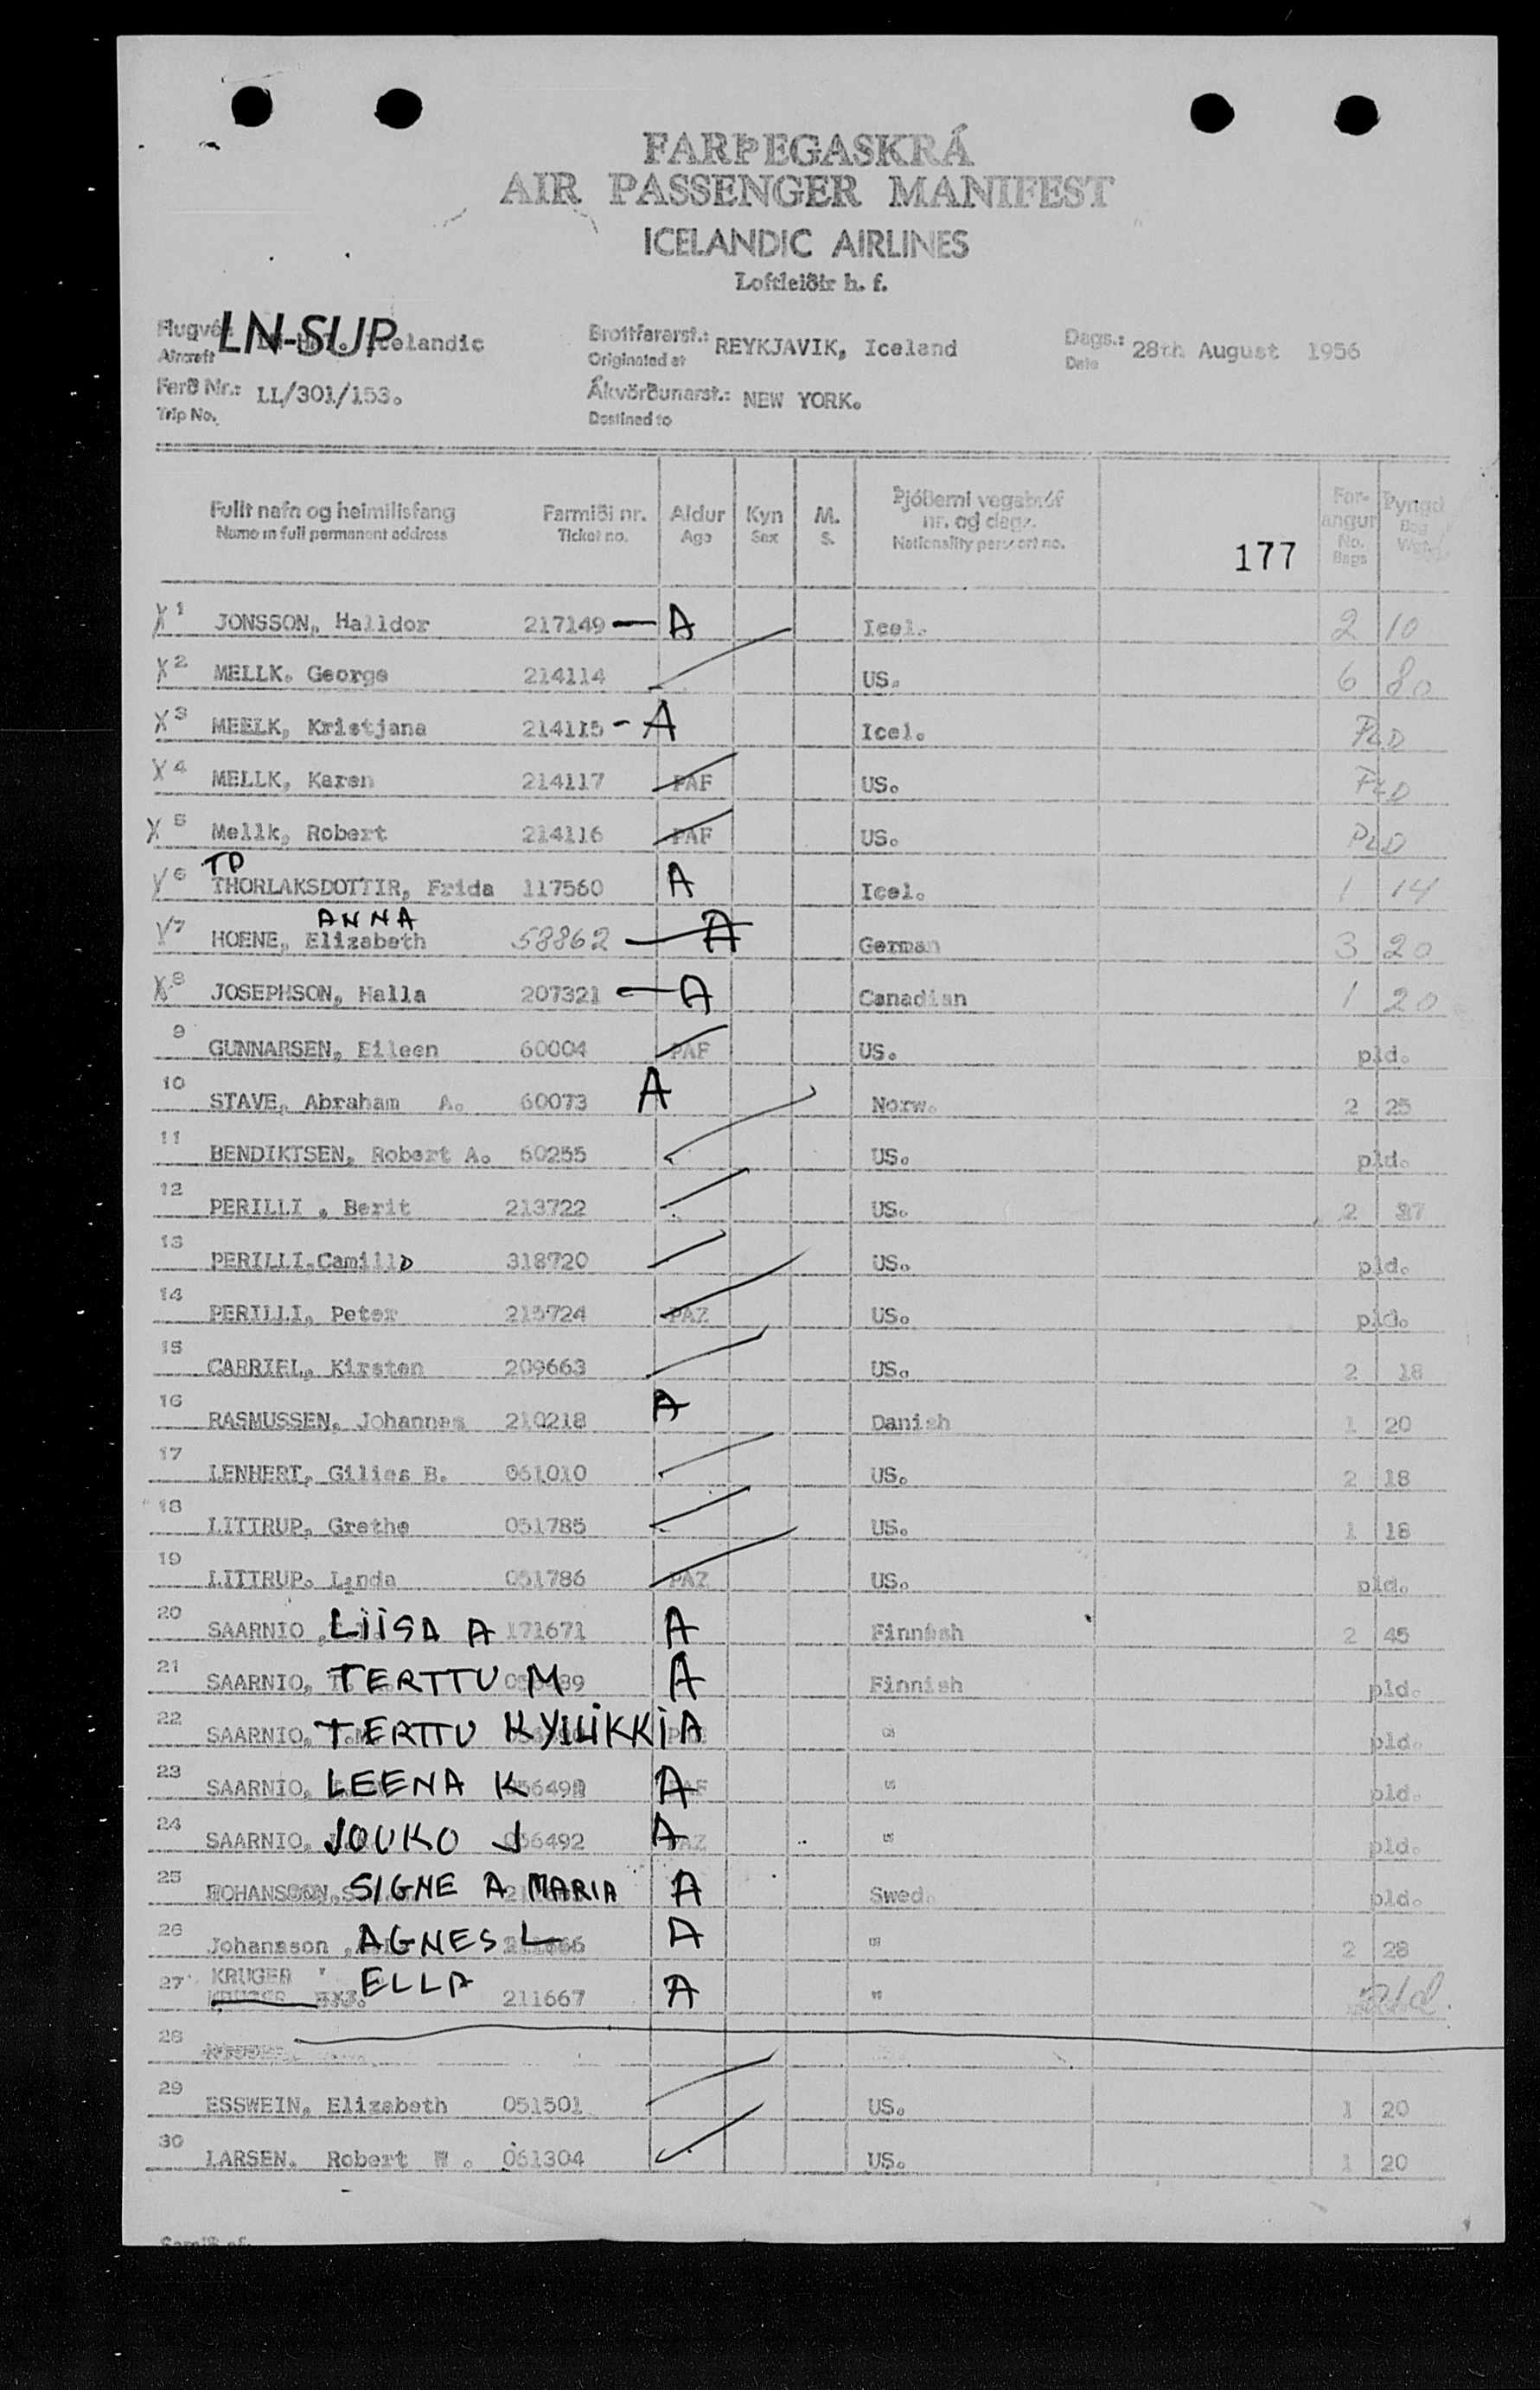 FARÞEGASKRÁ
AIR PASSENGER MANIFEST
ICELANDIC AIRLINES
Loftleiðir h. f.
Flugvél LN-SUP Icelandic Brottfararst.: REYKJAVIK, Iceland Dags.: 28th August 1956
Aircraft Originated at Date
Ferð Nr.: LL/301/153. Ákvörðunarst.: NEW YORK.
Trip No. Destined to
Fullt nafn og heimilisfang Farmiði nr. Aldur Kyn M. Þjóðerni vegabréf nr. og dags. Far-angur Þyngd
Name in full permanent address Ticket no. Age Sex S. Nationality passport no. 177 No. Bags
X 1 JONSSON, Halldor 217149 — A Icel. 2 10
X 2 MELLK. George 214114 US. 6 80
X 3 MEELK, Kristjana 214115 - A Icel. PLD
X 4 MELLK, Karen 214117 PAF US. PLD
X 5 Mellk, Robert 214116 PAF US. PLD
TP
6 THORLAKSDOTTIR, Frida 117560 A Icel. 1 14
ANNA
7 HOENE, Elizabeth 58862 — A German 3 20
X 8 JOSEPHSON, Halla 207321 — A Canadian 1 20
9 GUNNARSEN, Eileen 60004 PAF US. pld.
10 STAVE, Abraham A. 60073 A Norw. 2 25
11 BENDIKTSEN, Robert A. 60255 US. pld.
12 PERILLI , Berit 213722 US. 2
13 PERILLI.Camillo 318720 US. pld.
14 PERILLI, Peter 215724 PAZ US. pld.
15 GABRIEL, Kirsten 209663 US. 2 18
16 RASMUSSEN, Johannes 210218 A Danish 1 20
17 LENHERT, Gilies B. 061010 US. 2 18
18 LITTRUP, Grethe 051785 US. 1 18
19 LITTRUP. Linda 051786 PAZ US. pld.
20 SAARNIO , LIISA A 171671 A Finnish 2 45
21 SAARNIO, TERTTU M A Finnish pld.
22 SAARNIO, TERTTU KYLLIKKI A " pld.
23 SAARNIO, LEENA K A " pld.
24 SAARNIO, JOUKO J 056492 A " pld.
25 JOHANSSON, SIGNE A MARIA A Swed. pld.
26 Johansson , AGNES L A " 2 28
27 KRUGER " ELLA 211667 A " pld.
28
29 ESSWEIN, Elizabeth 051501 US. 1 20
30 LARSEN. Robert W . 061304 US. 1 20